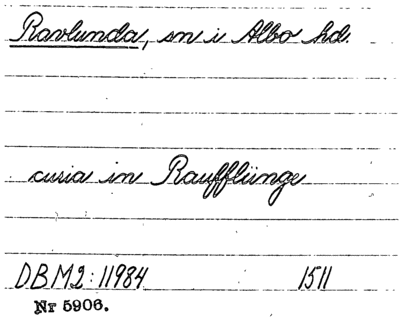 Ravlunda, sn i Albo hd.
curia in Raufflünge
DBM2:11984 1511
Nr 5906.